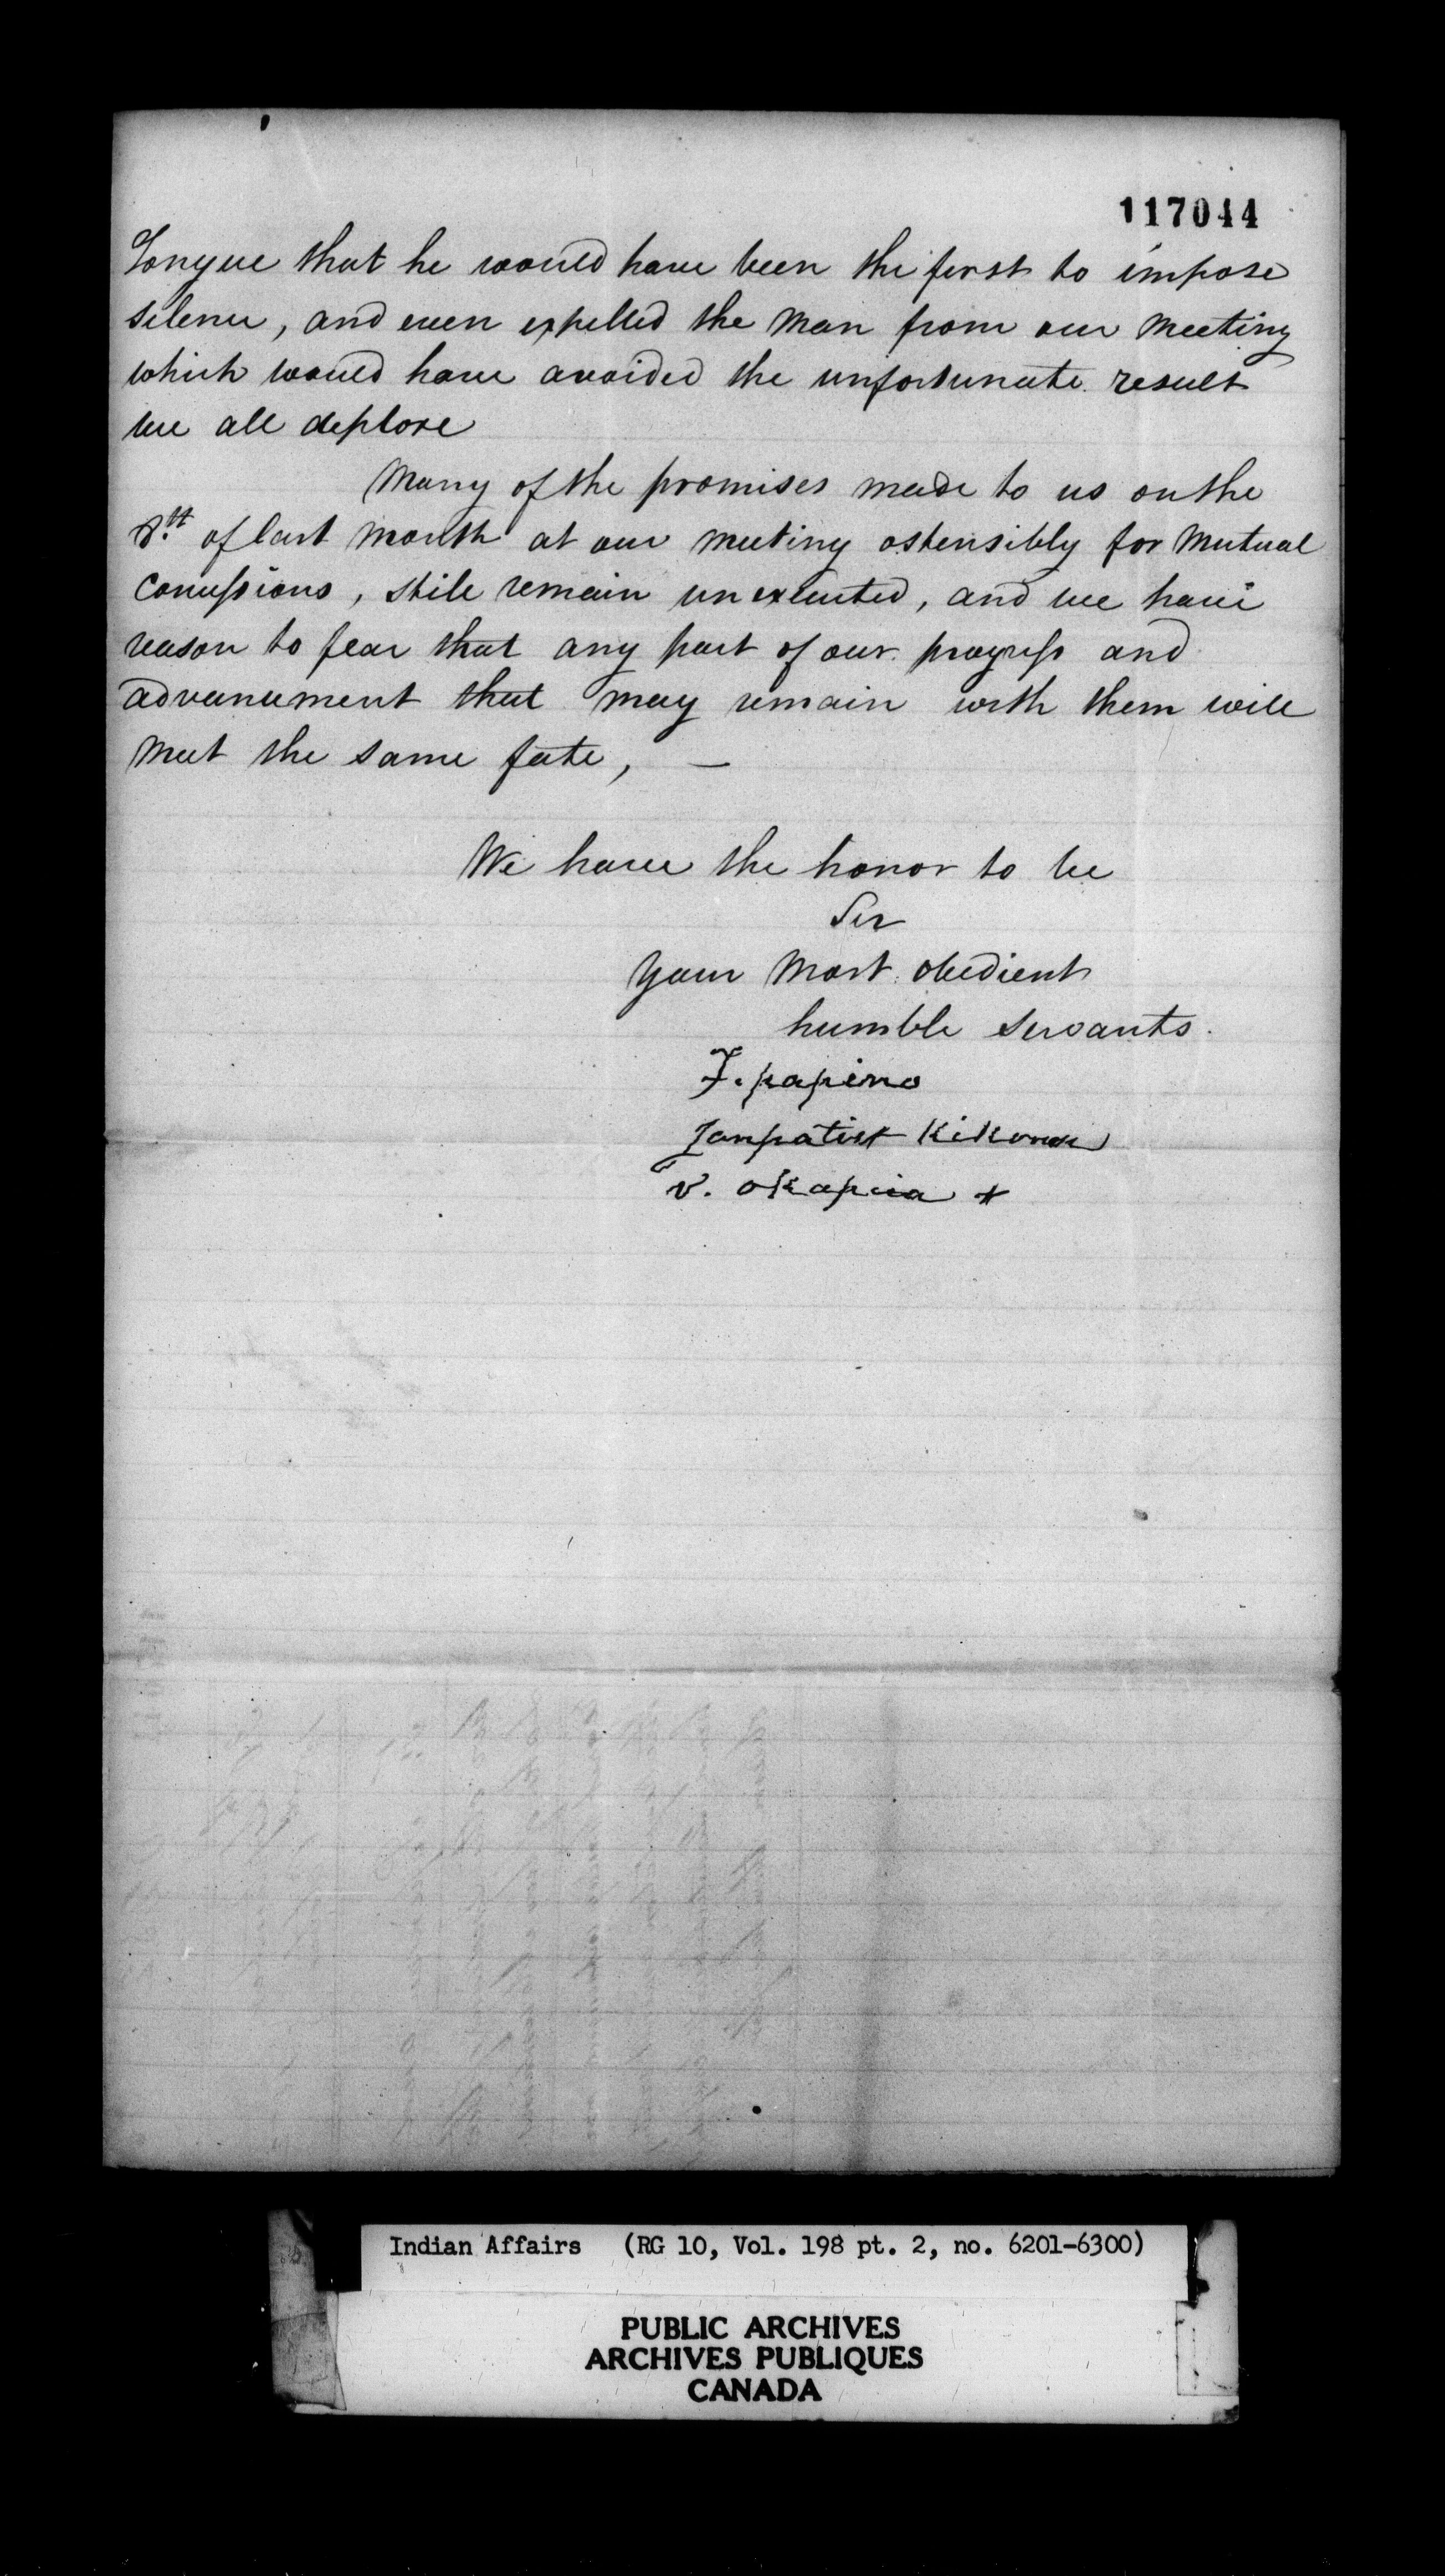 117044
Tongue that he would have been the first to impose
silence, and even expelled the man from our meeting
which would have avoided the unfortunate result
we all deplore
Many of the promises made to us on the
8.th of last month at our meeting ostensibly for mutual
Concessions, still remain unexecuted, and we have
reason to fear that any part of our progress and
advancement that may remain with them will
meet the same fate, —
We have the honor to be
Sir
your most obedient
humble servants.
F. papino
Janpatist
v.
Indian Affairs (RG 10, Vol. 198 pt. 2, no. 6201-6300)
PUBLIC ARCHIVES
ARCHIVES PUBLIQUES
CANADA